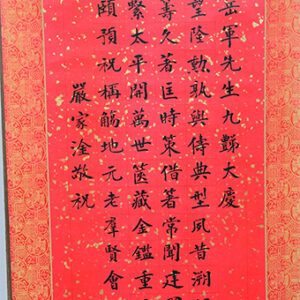 岳軍先生九豒大慶
望隆勳耿與侍典型夙昔溯
壽久著匡時策借箸常聞建
繫太平開萬世篋藏金鑑重
頤預祝稱觴地元老羣賢會
嚴家淦敬祝